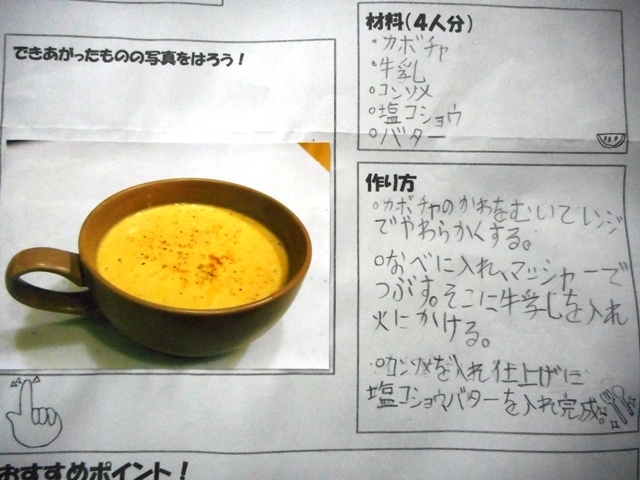 できあがったものの写真をはろう！
材料（４人分）
・カボチャ
・牛乳
・コンソメ
・塩コショウ
・バター
作り方
・カボチャのかわをむいてレンジ
でやわらかくする。
・なべに入れ、マッシャーで
つぶす。そこに牛乳を入れ
火にかける。
・コンソメを入れ仕上げに
塩コショウバターを入れ完成
おすすめポイント！